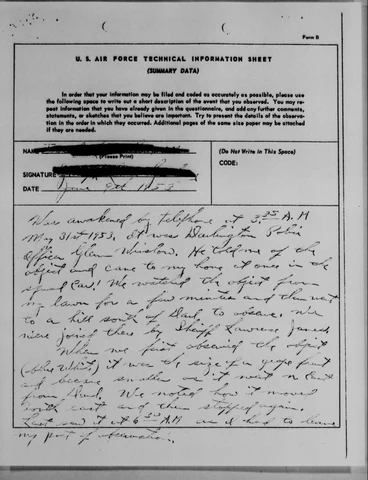 Form B
U. S. AIR FORCE TECHNICAL INFORMATION SHEET
(SUMMARY DATA)
In order that your information may be filed and coded as accurately as possible, please use
the following space to write out a short description of the event that you observed. You may re-
peat information that you have already given in the questionnaire, and add any further comments,
statements, or sketches that you believe are important. Try to present the details of the observa-
tion in the order in which they occurred. Additional pages of the same size paper may be attached
if they are needed.
NAME
(Please Print)
SIGNATURE
DATE June 9th 1953
(Do Not Write in This Space)
CODE:
Was awakened by telephone at 3:35 A.M
May 31st 1953. It was Darlington Police
Officer Glenn Winslow. He told me of the
object and came to my home at once in the
squad car. We watched the object from
my lawn for a few minutes and then went
to a hill south of to observe. We
were joined there by Sheriff Lawrence
When we first observed the object
(blue white) it was the size of a grape fruit
and became smaller as it went East
from We noted how it moved
north east and then stopped again.
Last saw it at 6 A.M as I had to leave
my post of observation.